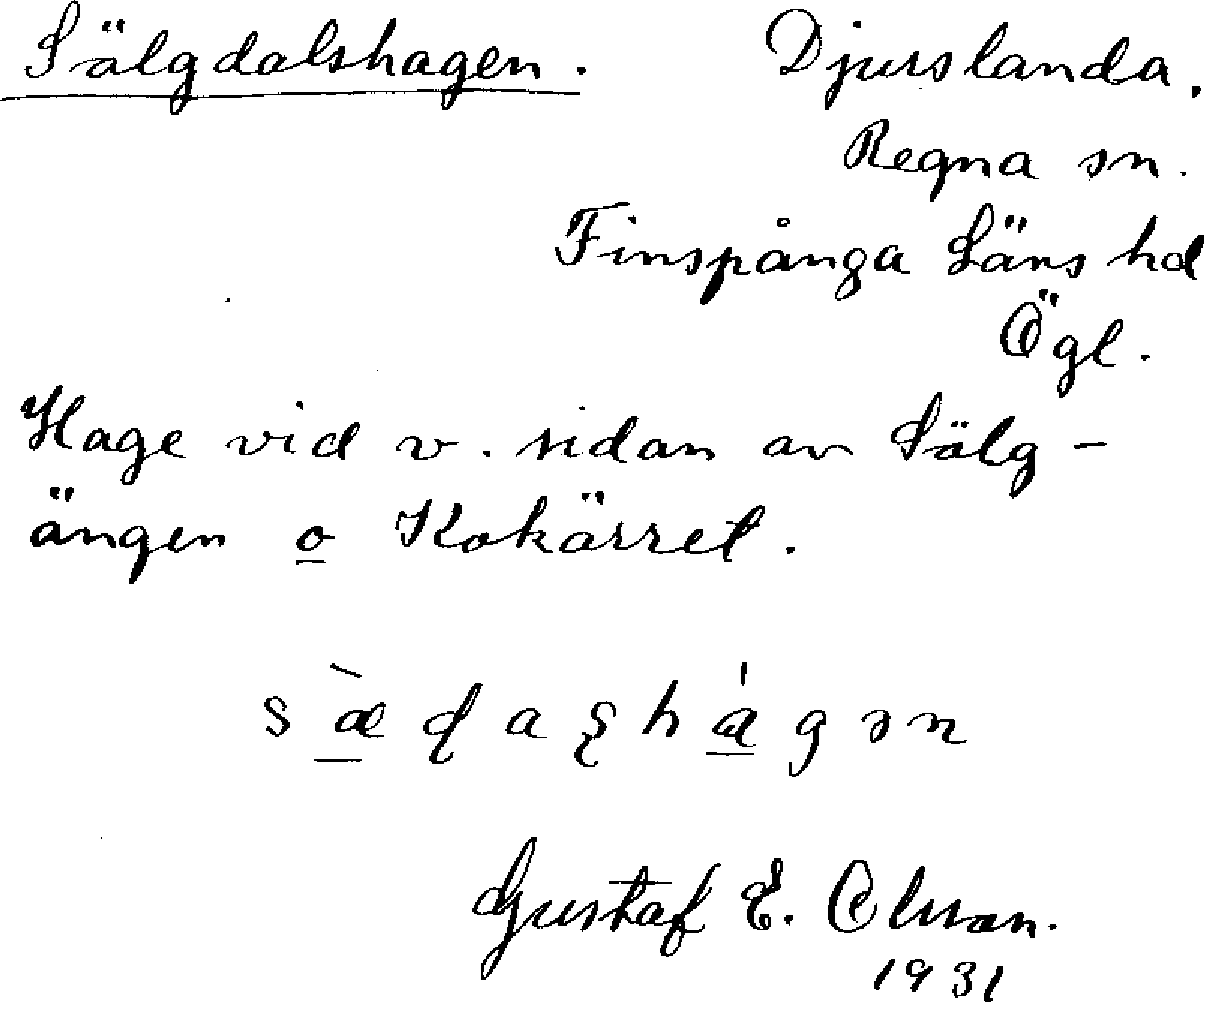 Sälgdalshagen. Djurslanda.
Regna sn.
Finspånga Läns hd
Ögl.
Hage vid v. sidan av Sälg-
ängen o Kokärret.
Gustaf E. Olsson.
1931